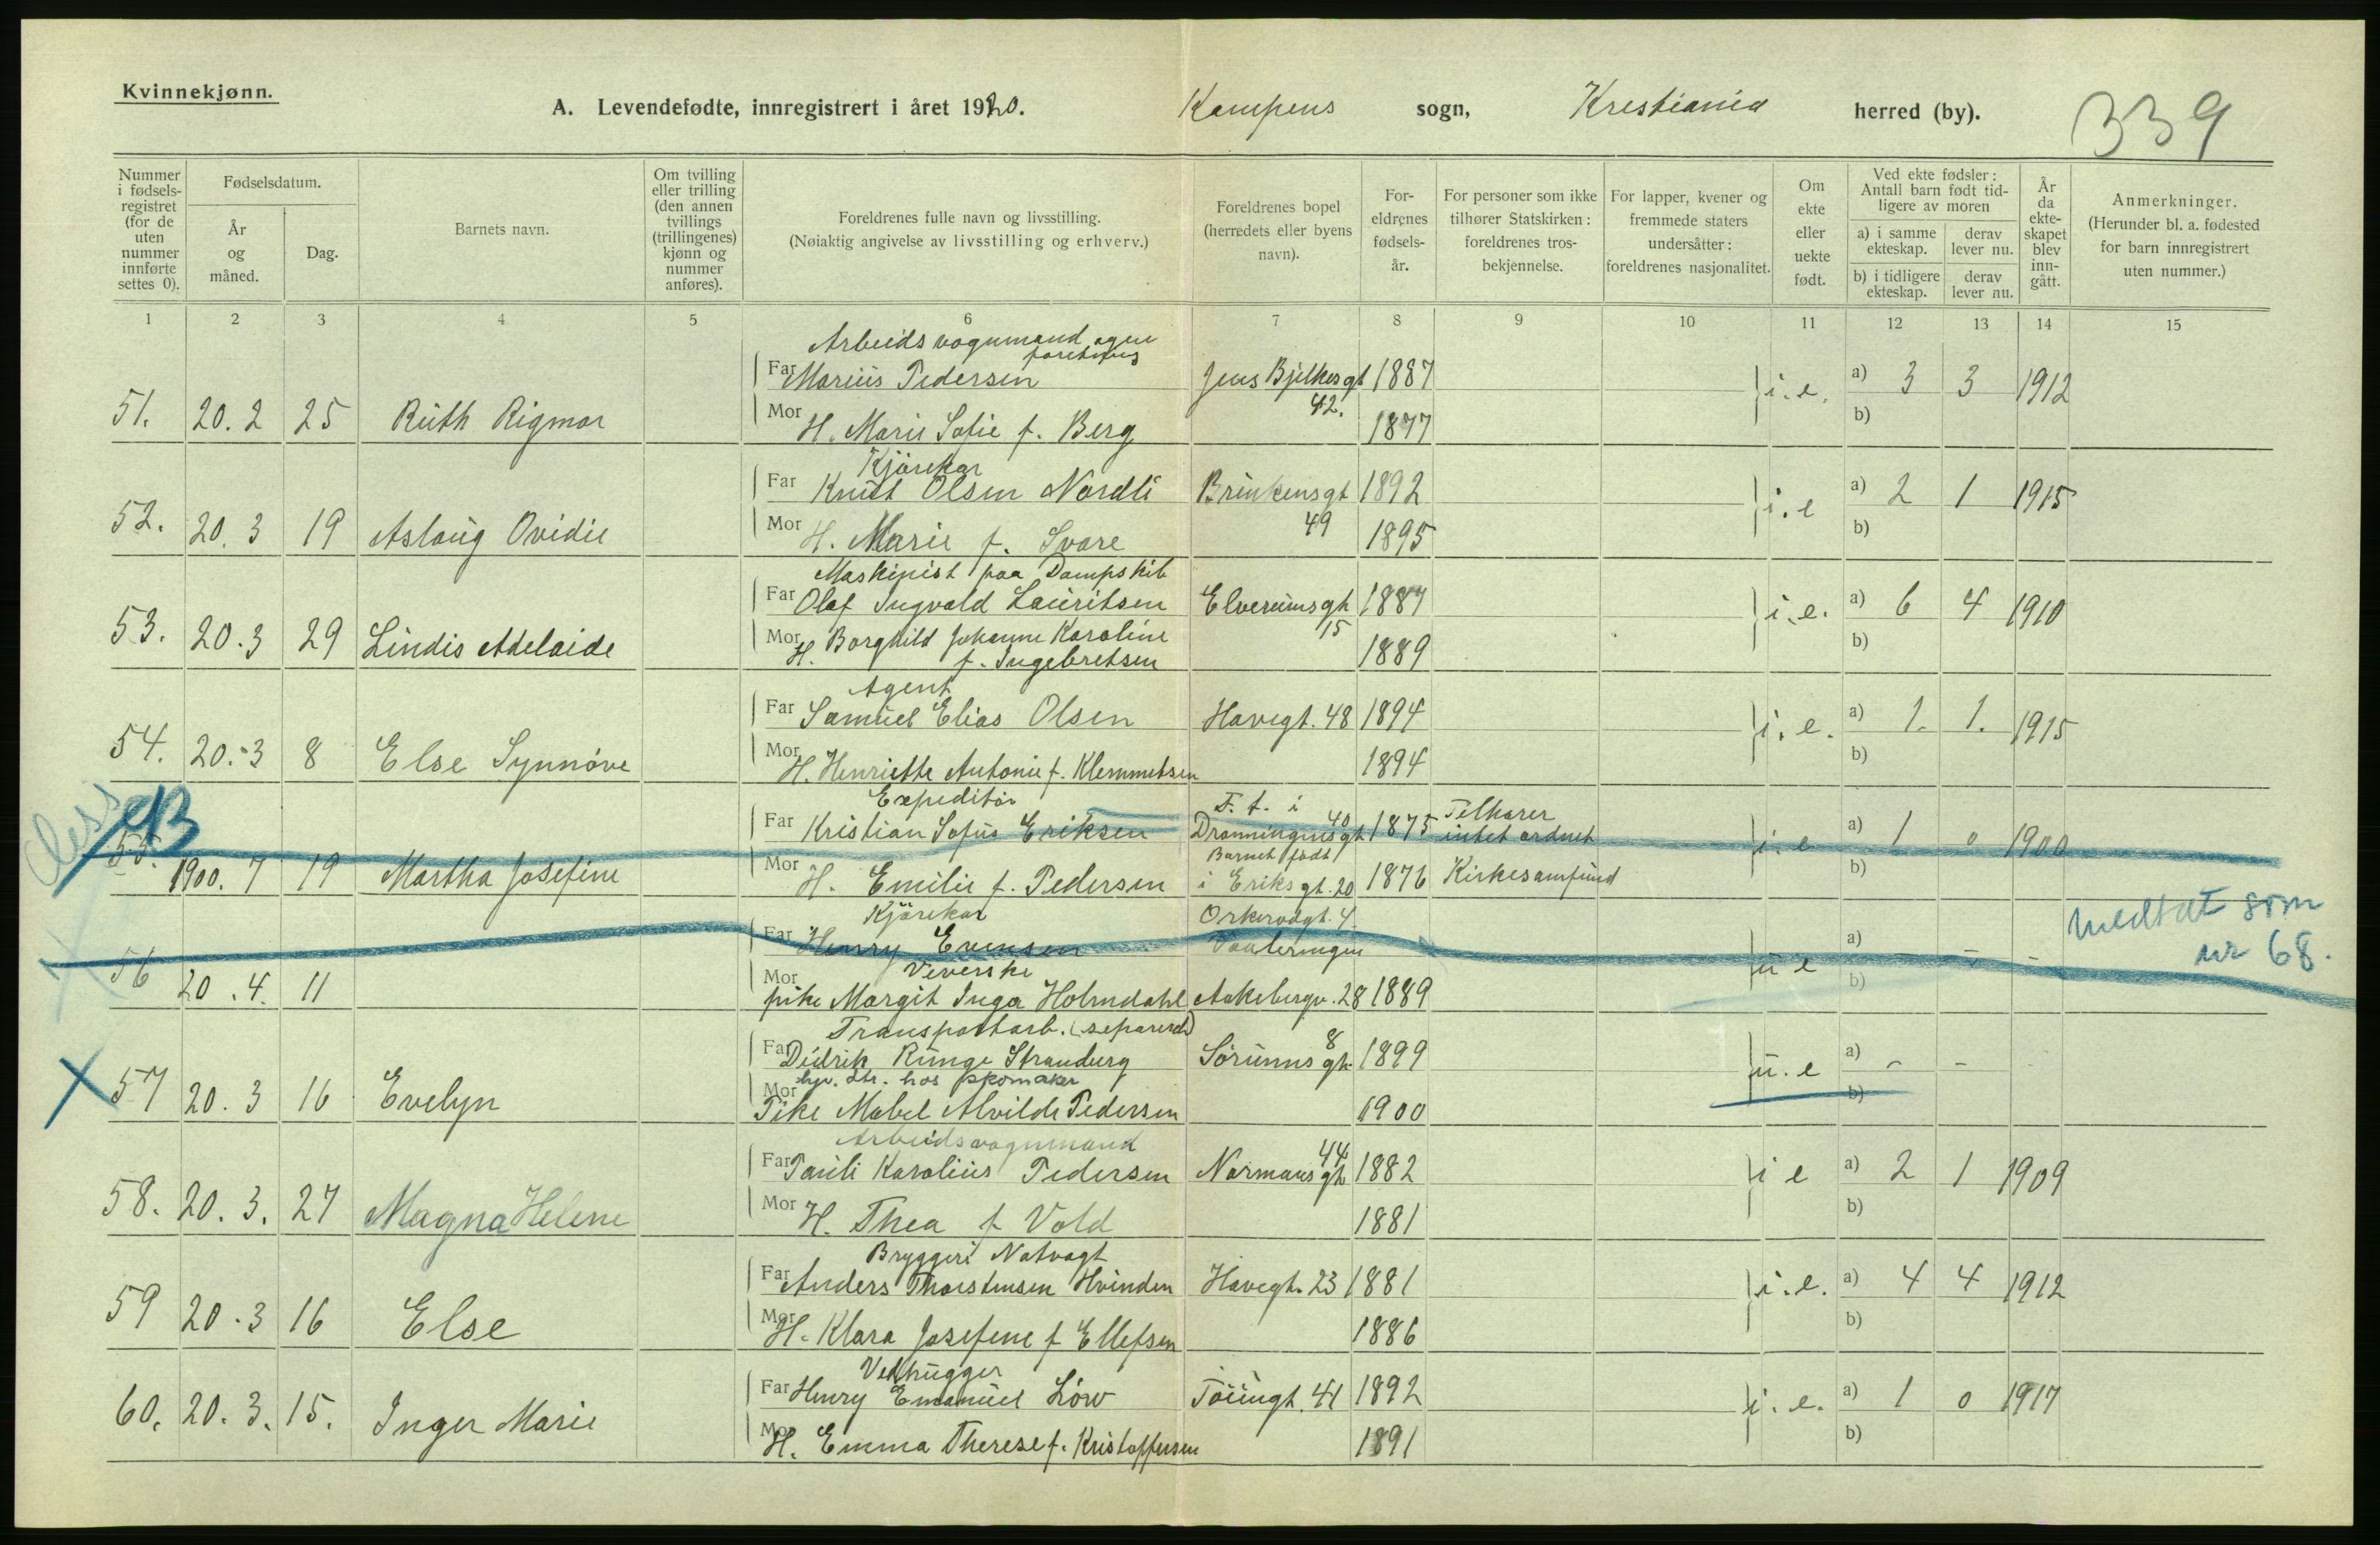 Kvinnekjønn.
A. Levendefødte, innregistrert i året 1920. Kampens sogn, Kristiania herred (by). 339
Nummer i fødsels-registret (for de uten nummer innførte settes 0).
Fødselsdatum.
År og måned.
Dag.
Barnets navn.
Om tvilling eller trilling (den annen tvillings (trillingenes) kjønn og nummer anføres).
Foreldrenes fulle navn og livsstilling.
(Nøiaktig angivelse av livsstilling og erhverv.)
Foreldrenes bopel (herredets eller byens navn).
For-eldrenes fødsels-år.
For personer som ikke tilhører Statskirken: foreldrenes tros-bekjennelse.
For lapper, kvener og fremmede staters undersåtter: foreldrenes nasjonalitet.
Om ekte eller uekte født.
Ved ekte fødsler: Antall barn født tid-ligere av moren
a) i samme ekteskap.
derav lever nu.
b) i tidligere ekteskap.
derav lever nu.
År da ekte-skapet blev inn-gått.
Anmerkninger.
(Herunder bl. a. fødested for barn innregistrert uten nummer.)
1 2 3 4 5 6 7 8 9 10 11 12 13 14 15
Arbeidsvognmand egen
Far Marius Pedersen Jens Bjelkesgt 1887
51. 20. 2 25 Ruth Rigmor i. e. a) 3 3 1912
Mor H. Marie Sofie f. Berg 42. 1877 b)
Kjørekar
Far Knut Olsen Nordli Brinkensgt 1892
52. 20. 3 19 Aslaug Ovidie i. e a) 2 1 1915
Mor H. Marie f. Svare 49 1895 b)
Maskinist paa Dampskib
Far Olaf Ingvald Lauritsen Elverumsgt 1887
53. 20. 3 29 Lindis Adelaide i. e. a) 6 4 1910
Mor H. Borghild Johanne Karoline 15 b)
f. Ingebretsen 1889
Agent
Far Samuel Elias Olsen Havegt. 48 1894
54. 20. 3 8 Else Synnøve i. e. a) 1. 1. 1915
Mor H. Henriette Antonie f. Klemmetsen 1894 b)
Expeditør F. t. i Tilhører
Far Kristian Sofus Eriksen Dronningensgt 40 1875 intet ordnet
55. 1900. 7 19 Martha Josefine i. e a) 1 0 1900
Barnet født
Mor H. Emilie f. Pedersen i Eriksgt. 20 1876 Kirkesamfund b)
Kjørekar
Far Henry Evensen
56 20. 4. 11 u e a) - - - medtat som nr 68.
Veverske
Mor pike Margit Inga Holmdahl Aakebergv. 28 1889 b)
Transportarb. (separeret)
Far Didrik Runge Strandberg Sørumsgt. 8 1899
57 20. 3 16 Evelyn u. e a) - - -
hos skomaker
Mor Pike Mabel Alvilde Pedersen 1900 b)
Arbeidsvognmand
Far Pauli Karolius Pedersen Normansgt 44 1882
58. 20. 3. 27 Magna Helene i e a) 2 1 1909
Mor H. Thea f Vold 1881 b)
Bryggeri Natvagt
Far Anders Thorstensen Hvinden Havegt. 23 1881
59 20. 3 16 Else i. e. a) 4 4 1912
Mor H. Klara Josefine f Ellefsen 1886 b)
Vedhugger
Far Henry Emanuel Löw Töiengt. 41 1892
60. 20. 3. 15. Inger Marie i. e. a) 1 0 1917
Mor H. Emma Therese f. Kristoffersen 1891 b)